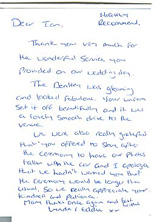 Highly
Recommend.
Dear Ian,
Thank you very much for
the wonderful service you
provided on our wedding day.
The Bentley was gleaming
and looked fabulous. Your
set it off beautifully and it was
a lovely smooth drive to the
venue.
We were also really grateful
that you offered to stay after
the ceremony to have our photos
taken with the car and I apologise
that we hadn't warned you that
the ceremony would be longer than
usual. So we really appreciate your
kindness and patience.
Many thanks once again and best
wishes
Linda & Eddie xx